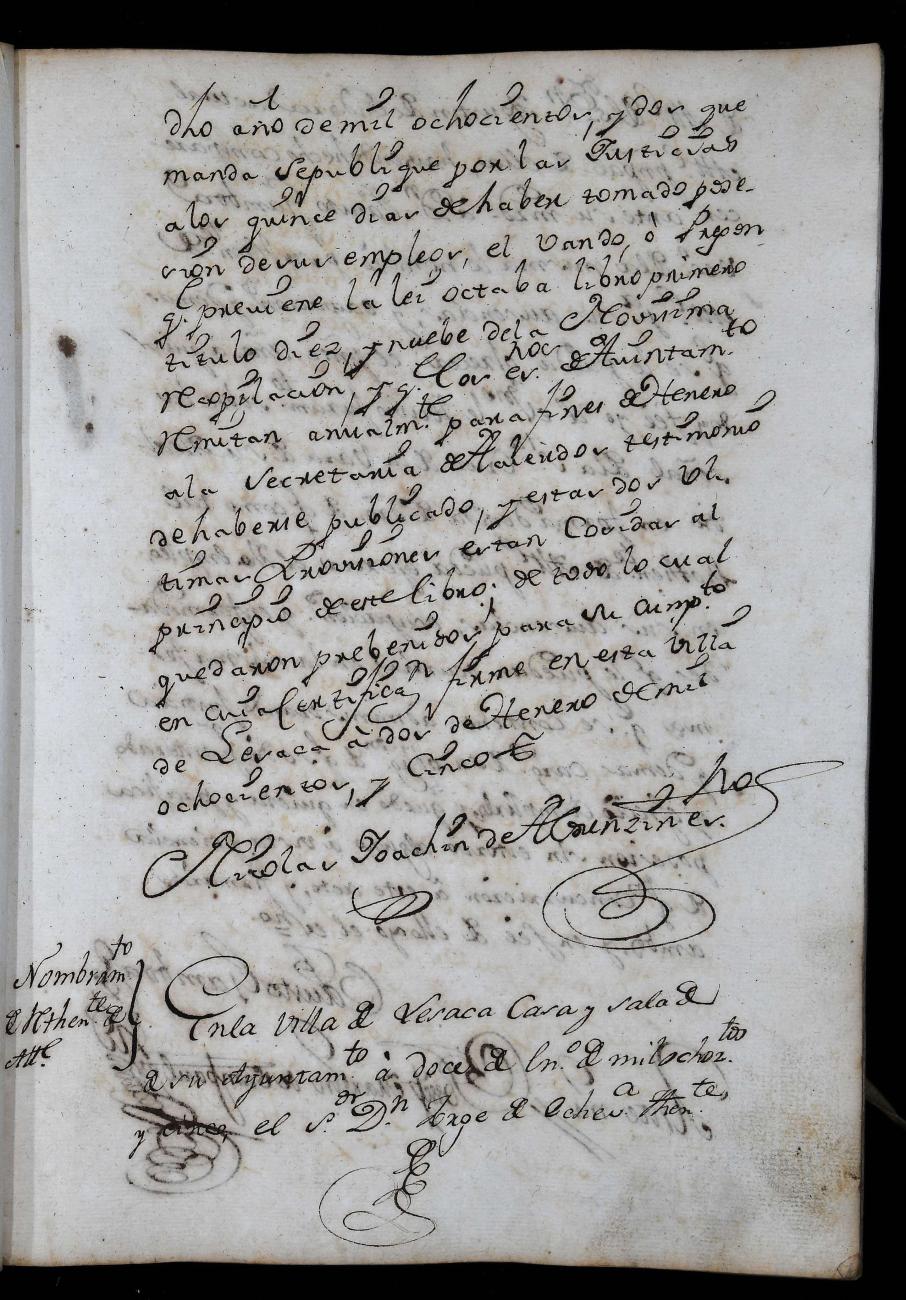 dho año de mil ochocientos, y dos que
manda Sepublique por las Justicias
a los quince dias de haber tomado pose-
sion de sus empleos, el Vando, ó Pregon
q.e previene la lei octaba libro primero
titulo diez, y nuebe dela Novisima
recopilacion, y q.e los esnos. de Aiuntam.to
remitan anualm.te para fines de Henero
ala Secretaria de Acuerdos testimonio
de haberse publicado, y estas dos ul-
timas Provisiones estan Cocidas al
principio de este libro; de todo lo cual
quedaron prebenidos para su cump.to
en cuia Certifican firme en esta Villa
de Lesaca à dos de Henero de mil
ochocientos, y Cinco
Nicolas Joachin de Aldunzin es.no
Nombram.to
de Rthen.te de
Alc.e
En la Villa de Lesaca Casa y sala de
de su Ayuntam.to à doce de En.o de mil ochoz.tos
y cinco el s.or D.n Jorge de Echev.a Then.te